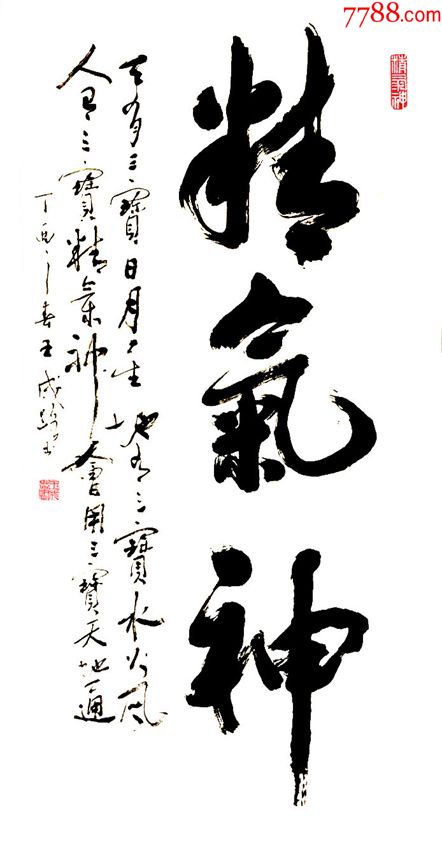 7788.com
精氣神
精氣神
天有三寶日月星地有三寶水火風
人有三寶精氣神會用三寶天地通
丁酉之春王成書